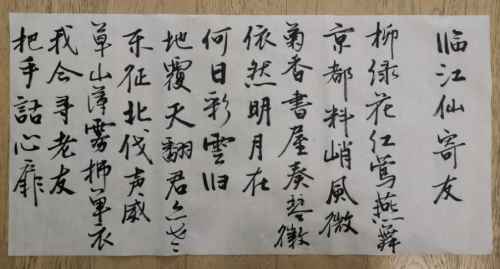 临江仙寄友
柳绿花红莺燕舞
京都料峭风微
菊香書屋奏琴徽
依然明月在
何日彩雲归
地覆天翻君
东征北伐声威
草山薄雾拂單衣
我会寻老友
把手話心扉